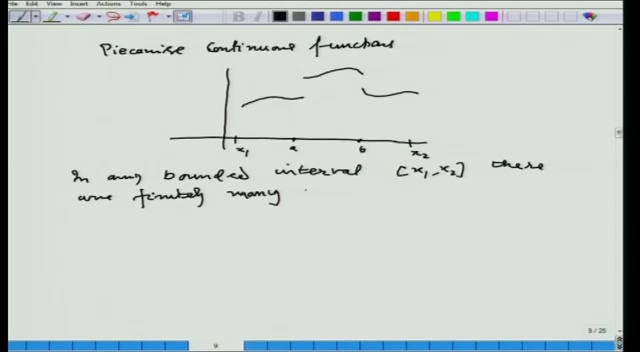 File Edit View Insert Actions Tools Help
Piecewise Continuous functions
x₁ a b x₂
In any bounded interval [x₁, x₂] there
are finitely many
9 / 25
9